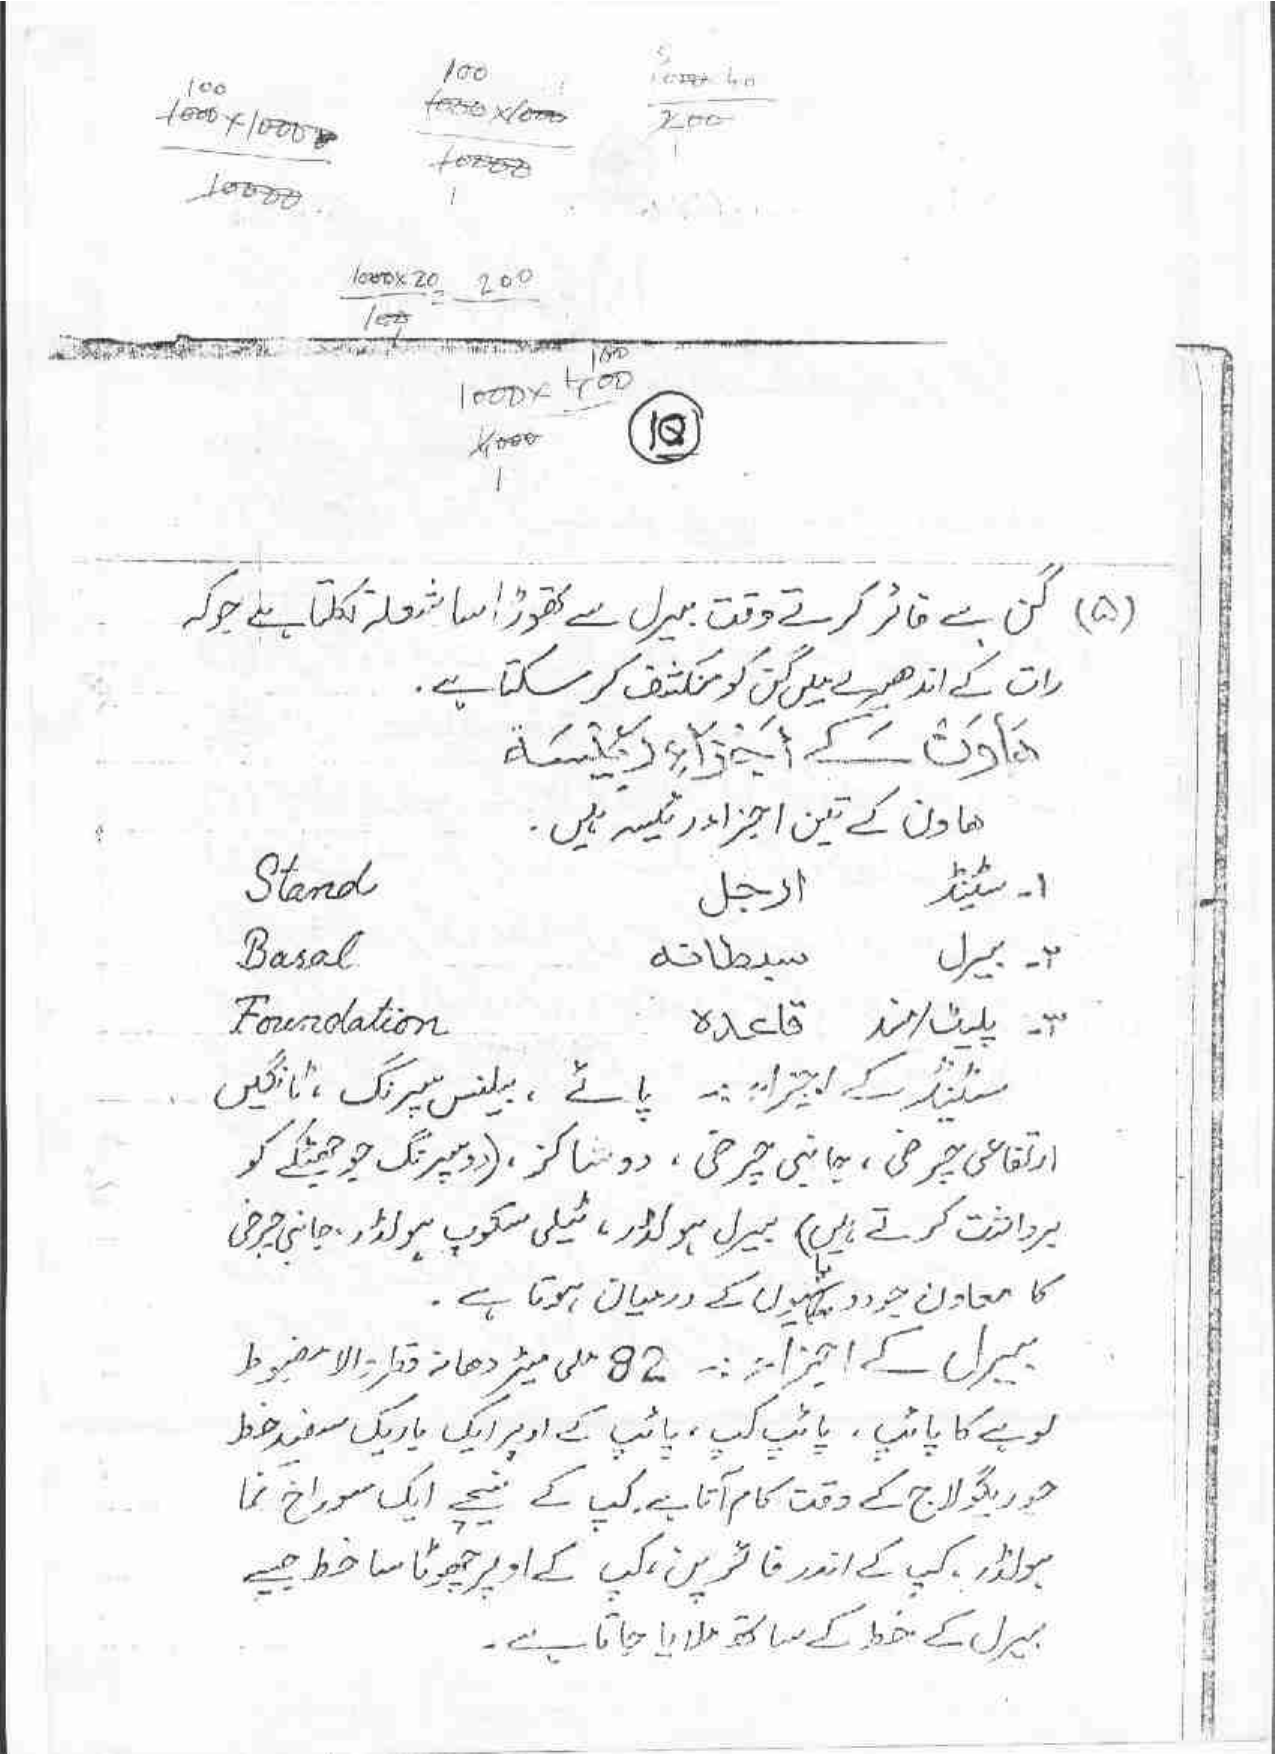 100
1000 x 1000
10000
100
1000 x 1000
10000
1
5
1000 40
200
1
1000 x 20 = 200
100
1
100
1000 x 400
4000
1
10
(۵) گن سے فائر کرتے وقت بیرل سے تھوڑا سا شعلہ نکلتا ہے جو کہ
رات کے اندھیرے میں گن کو منکشف کر سکتا ہے۔
ھَاوَن کے اَجْزَاء رَئِیسَة
ھاون کے تین اجزاء رئیسہ ہیں۔
۱۔ سٹینڈ ارجل Stand
۲۔ بیرل سبطانہ Basal
۳۔ پلیٹ/ قاعدہ Foundation
سٹینڈ کے اجزاء :۔ پائے ، بیلنس سپرنگ ، ٹانگیں
ارتفاعی چرخی ، جانبی چرخی ، دو شاکز ، (دو سپرنگ جو جھٹکے کو
برداشت کرتے ہیں) بیرل ہولڈر ، ٹیلی سکوپ ہولڈر، جانبی چرخی
کا معاون جو دو کے درمیان ہوتا ہے ۔
بیرل کے اجزاء :۔ 82 ملی میٹر دھانہ قطر والا مضبوط
لوہے کا پائپ ، پائپ کپ ، پائپ کے اوپر ایک باریک سفید خط
جو ریگولاج کے وقت کام آتا ہے، کپ کے نیچے ایک سوراخ نما
ہولڈر ، کپ کے اندر فائر پن ، کپ کے اوپر چھوٹا سا خط جسے
بیرل کے خط کے ساتھ ملایا جاتا ہے ۔